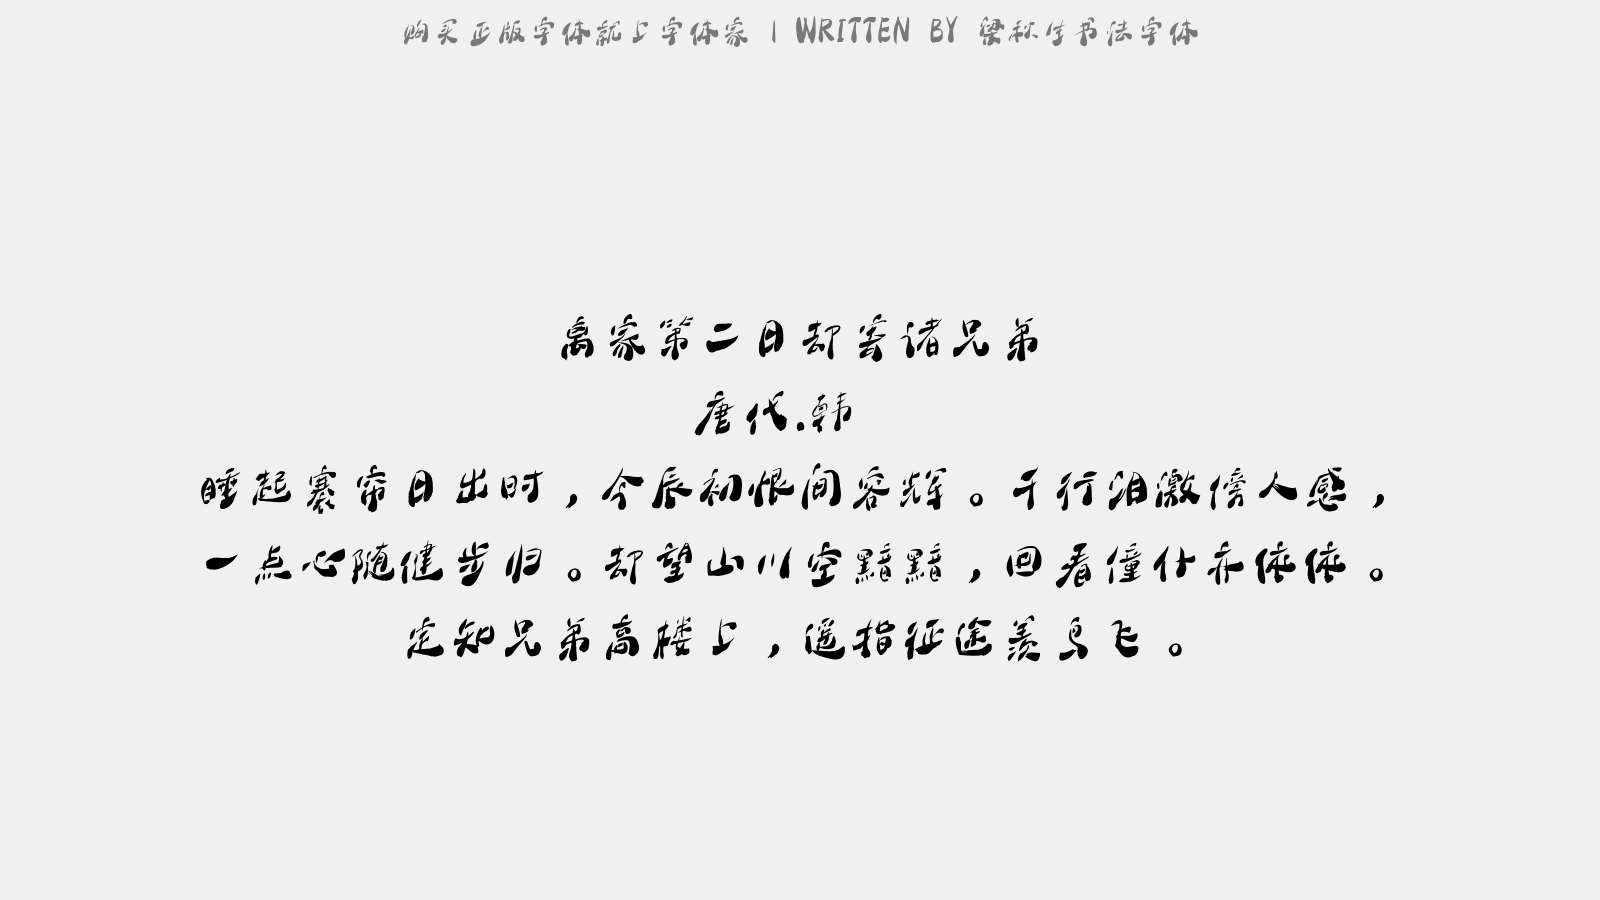 购买正版字体就上字体家 | WRITTEN BY 梁秋生书法字体
离家第二日却寄诸兄弟
唐代.韩
睡起褰帘日出时，今辰初恨间容辉。千行泪激傍人感，
一点心随健步归。却望山川空黯黯，回看僮仆亦依依。
定知兄弟高楼上，遥指征途羡鸟飞。